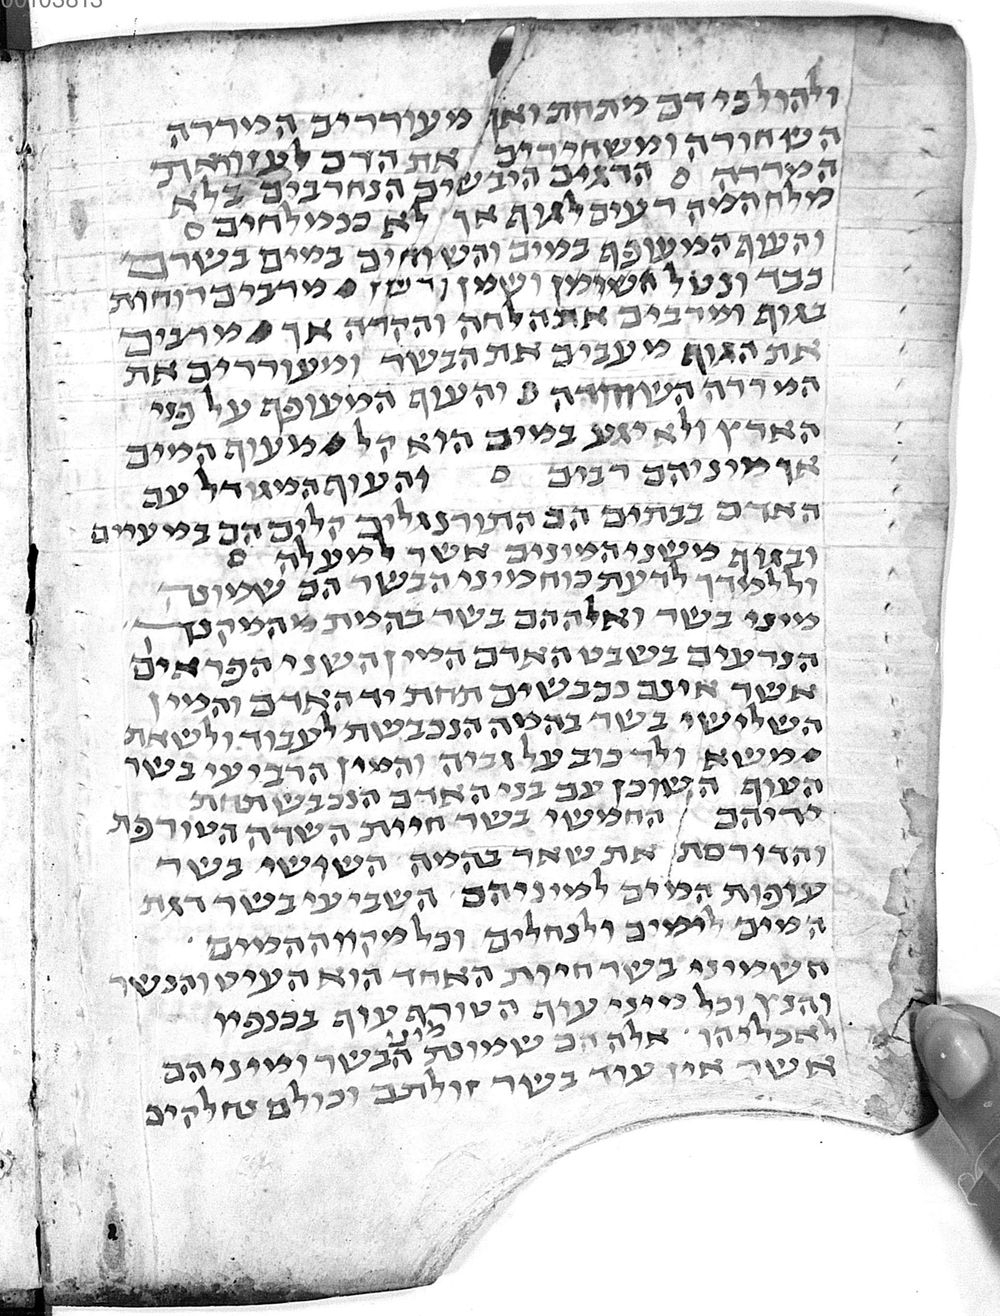 00103813
ולהולכי דם מתחת ואף מעוררים המררה
השחורה ומשחירים את הדם לעזוואת
המררה ס הדגים היבשים הנחרבים בלא
מלח המה רעים לגוף אך לא כנמלחים ס
והעוף המעופף במים והשוחים במים בשרם
כבד ונטל ושמן מרבים רוחות
בגוף ומרבים את הלחה והקרה אך מרבים
את הגוף מעבים את הבשר ומעוררים את
המררה השחורה ס והעוף המעופף על פני
הארץ ולא יגע במים הוא קל מעוף המים
אך מיניהם רבים ס והעוף המגודל עם
האדם בבתים הם התורנגלים קלים הם במעיים
ובגוף משני המינים אשר למעלה ס
וללמדך לדעת כוח מיני הבשר הם שמונה
מיני בשר ואלה הם בשר בהמת מהמקנה
הנרעים בשבט האדם המין השני הפראים
אשר אינם נכבשים תחת יד האדם והמין
השלישי בשר בהמה הנכבשת לעבוד ולשאת
משא ולרכוב על גביה והמין הרביעי בשר
העוף השוכן עם בני האדם הנכבש תחת
ידיהם החמשי בשר חיית השדה הטורפת
והדורסת את שאר בהמה הששי בשר
עופות המים למיניהם השביעי בשר דגת
המים לימים ולנחלים וכל מקוה המים
השמוני בשר חיות האחד הוא העיט והנשר
והנץ וכל מיני עוף הטורף עוף בכנפיו
לאכליהו אלה הם שמונת מיני הבשר ומיניהם
אשר אין עוד בשר זולתם וכולם נחלקים